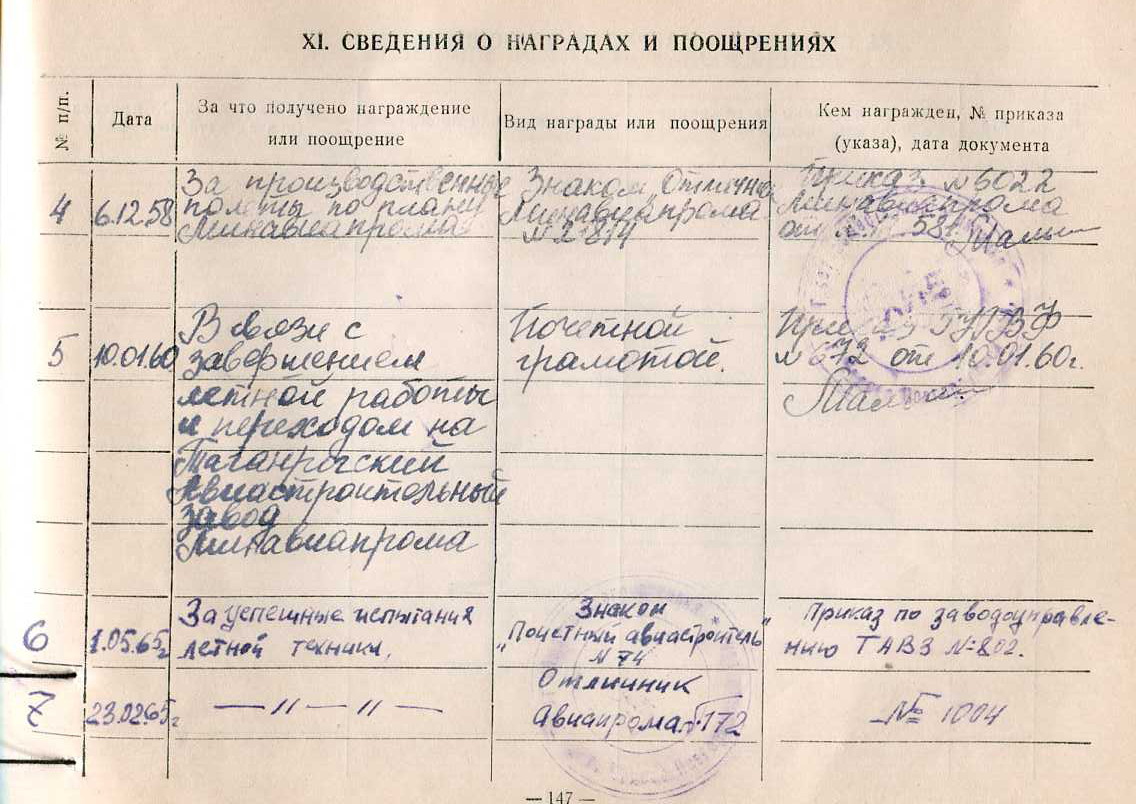 XI. СВЕДЕНИЯ О НАГРАДАХ И ПООЩРЕНИЯХ
№ п/п.
Дата
За что получено награждение
или поощрение
Вид награды или поощрения
Кем награжден, № приказа
(указа), дата документа
4
6.12.58
За производственные
полеты по плану
Минавиапрома
Знаком „Отлични
Минавиапрома
Приказ №5022
Минавиапрома
от
58г.
5
10.01.60
В связи с
завершением
летной работы
и переходом на
Таганрогский
Авиастроительный
завод
Минавиапрома
Почетной
грамотой.
Приказ ГУГВФ
№672 от 10.01.60г.
6
1.05.65г
За успешные испытания
летной техники.
Знаком
"Почетный авиастроитель"
№ 74
Приказ по заводоуправле-
нию ТАВЗ №802.
7
23.02.65г
— 〃 — 〃 —
Отличник
Авиапрома №172
№ 1004
— 147 —